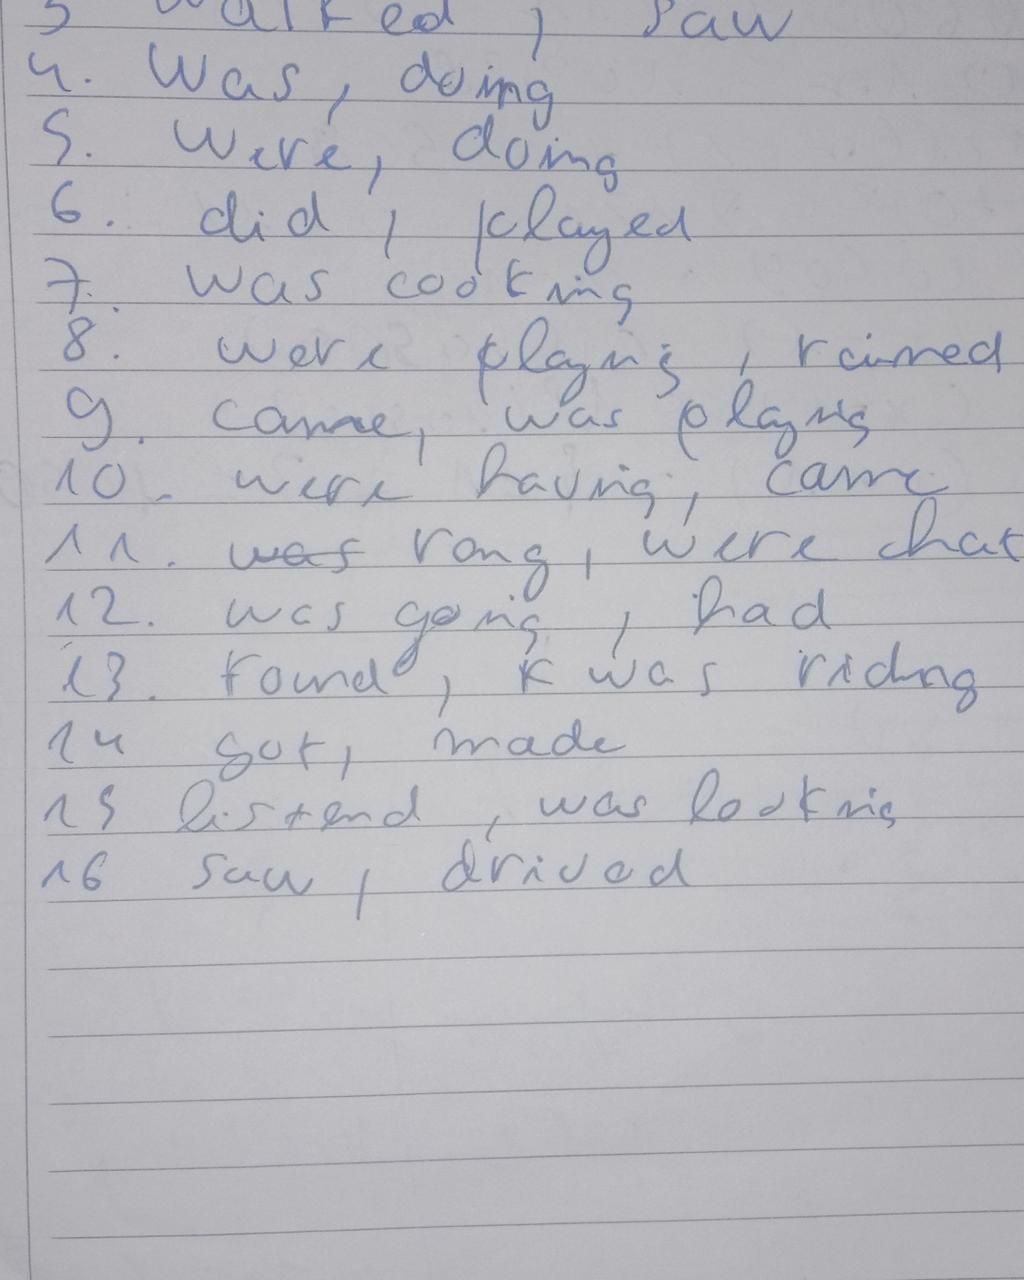 3 walked, saw
4. Was, doing
5. Were, doing
6. did, played
7. was cooking
8. were playing, rained
9. came, was playing
10. were having, came
11. was rang, were chat
12. was going, had
13. found, was riding
14 got, made
15 listend, was looking
16 saw, drived